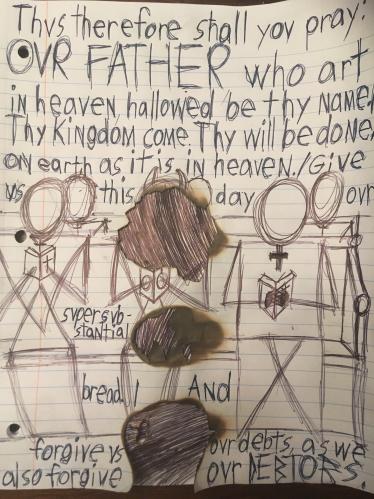 Thvs therefore shall yov pray:
OVR FATHER who art
in heaven, hallowed be thy NAME.
Thy KINGDOM come. Thy will be done,
ON earth as it is in heaven./Give
vs this day ovr
svpersvb-
stantial
bread./ AND
forgive vs ovr debts, as we
also forgive ovr DEBTORS.